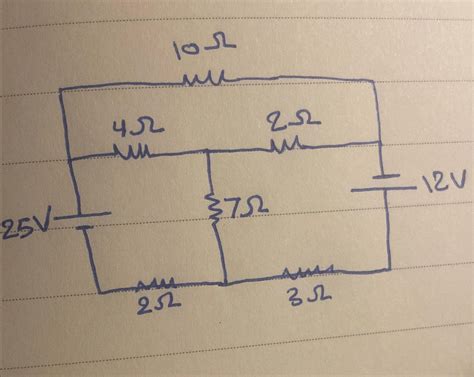 10Ω
4Ω
2Ω
25V
7Ω
12V
2Ω
3Ω